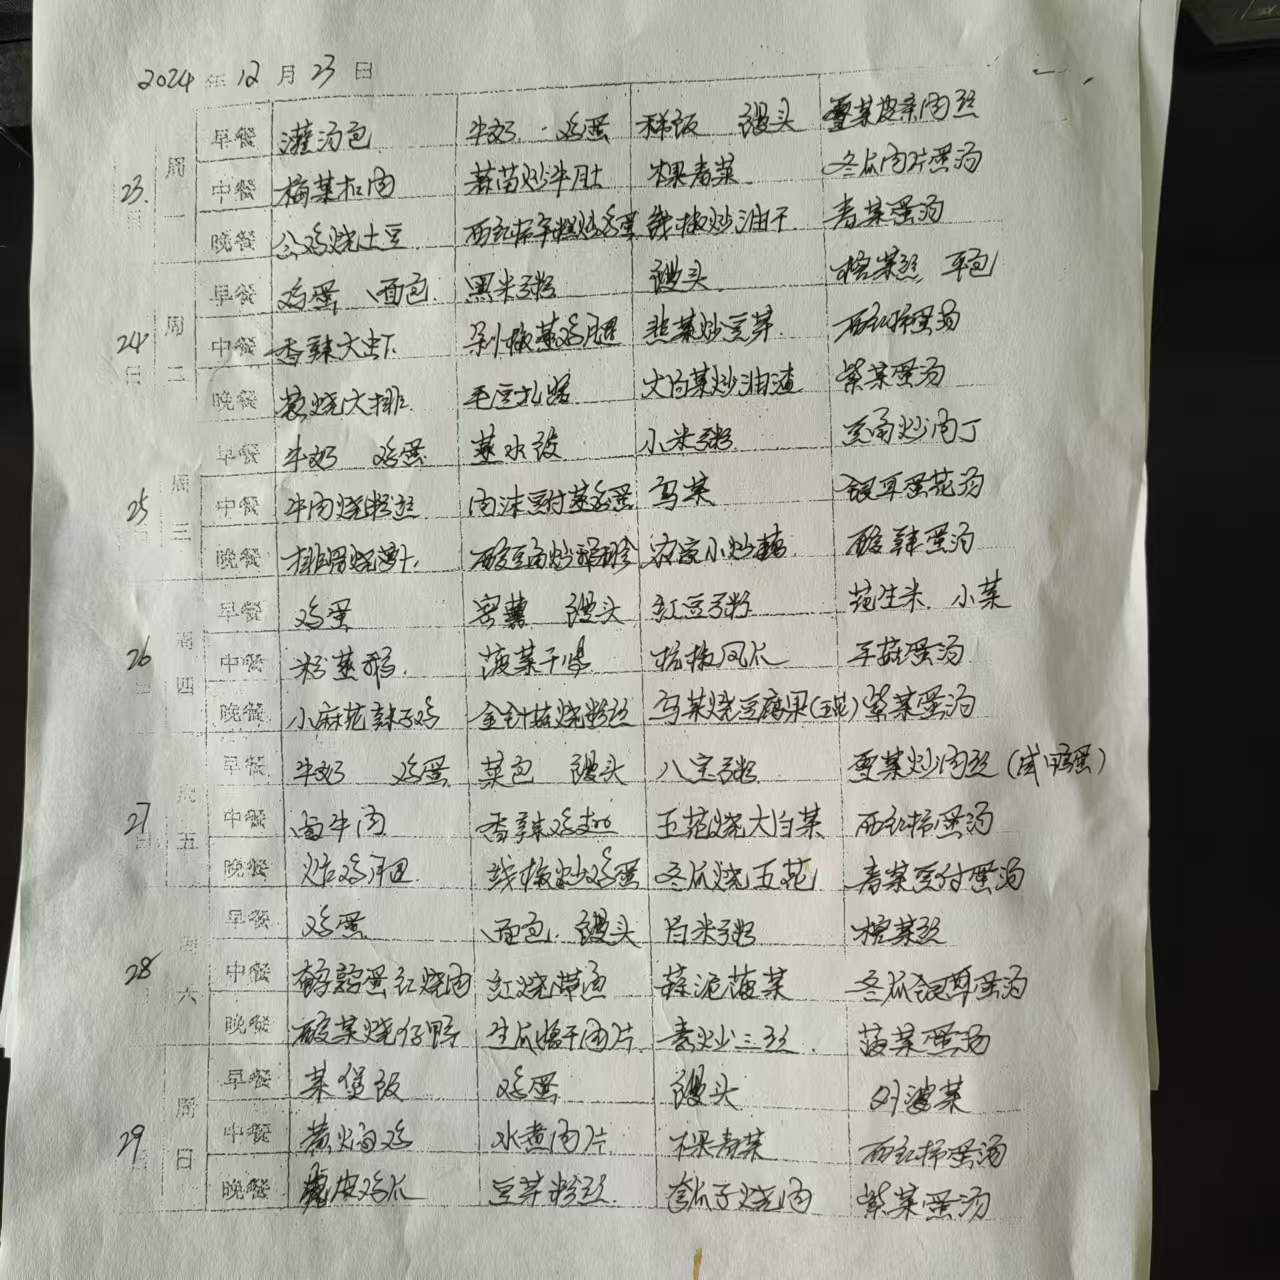 2024年12月23日
23日 周一 早餐 灌汤包 牛奶 鸡蛋 稀饭 馒头 雪菜皮亲肉丝
中餐 梅菜扣肉 蒜苗炒牛肚 棵青菜 冬瓜肉片蛋汤
晚餐 公鸡烧土豆 西红柿炒鸡蛋 线椒炒油干 青菜蛋汤
24日 周二 早餐 鸡蛋 面包 黑米粥 馒头 榨菜丝
中餐 香辣大虾 剁椒蒸鸡腿 韭菜炒豆芽 西红柿蛋汤
晚餐 葱烧大排 毛豆 大白菜炒油渣 紫菜蛋汤
25日 周三 早餐 牛奶 鸡蛋 蒸水饺 小米粥 豆角炒肉丁
中餐 牛肉烧粉丝 肉沫豆付蒸鸡蛋 乌菜 银耳蛋花汤
晚餐 排骨烧萝卜 酸豆角炒 农家小炒藕 酸辣蛋汤
26日 周四 早餐 鸡蛋 窝薯 馒头 红豆粥 花生米 小菜
中餐 粉蒸鹅 菠菜千张 杭椒凤爪 平菇蛋汤
晚餐 小麻花辣子鸡 金针菇烧粉丝 乌菜烧豆腐果(五花) 紫菜蛋汤
27日 周五 早餐 牛奶 鸡蛋 菜包 馒头 八宝粥 雪菜炒肉丝(咸鸭蛋)
中餐 卤牛肉 香辣鸡 五花烧大白菜 西红柿蛋汤
晚餐 炸鸡腿 线椒炒鸡蛋 冬瓜烧五花 青菜豆付蛋汤
28日 周六 早餐 鸡蛋 面包 馒头 白米粥 榨菜丝
中餐 鹌鹑蛋红烧肉 红烧带鱼 蒜泥菠菜 冬瓜银耳蛋汤
晚餐 酸菜烧仔鸭 生瓜熘干肉片 素炒三丝 菠菜蛋汤
29日 周日 早餐 菜煲饭 鸡蛋 馒头
中餐 黄焖鸡 水煮肉片 棵青菜 西红柿蛋汤
晚餐 虎皮鸡爪 豆芽粉丝 瓜子烧肉 紫菜蛋汤